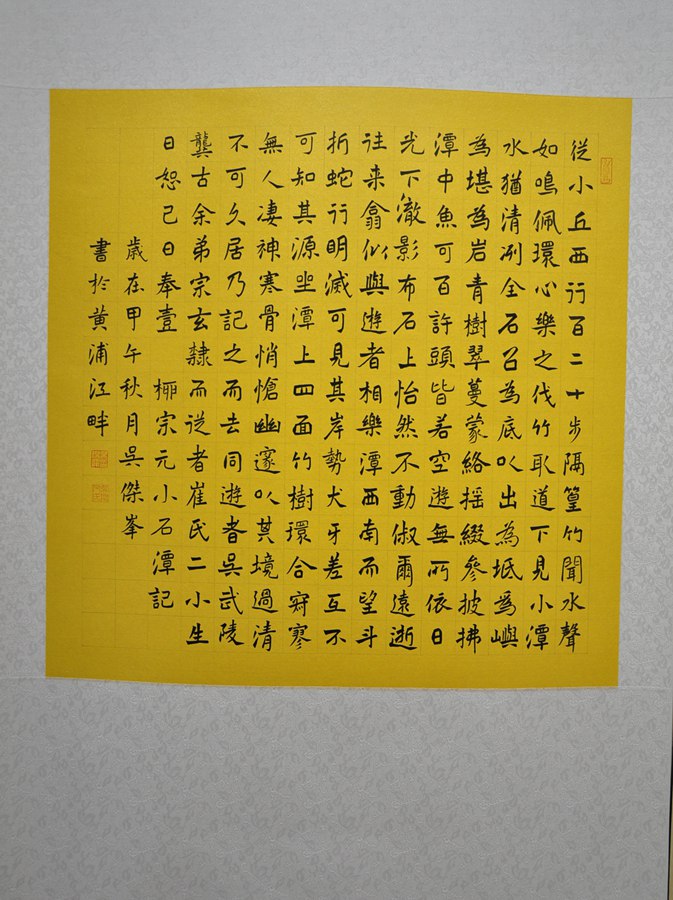 從小丘西行百二十步隔篁竹聞水聲
如鳴佩環心樂之伐竹取道下見小潭
水猶清冽全石召為底以出為坻為嶼
為堪為岩青樹翠蔓蒙絡揺綴參披拂
潭中魚可百許頭皆若空遊無所依日
光下澈影布石上怡然不動俶爾遠逝
往来翕似與遊者相樂潭西南而望斗
折蛇行明滅可見其岸勢犬牙差互不
可知其源坐潭上四面竹樹環合寂寥
無人凄神寒骨悄愴幽邃以其境過清
不可久居乃記之而去同遊者吳武陵
龔古余弟宗玄隸而從者崔氏二小生
曰恕己曰奉壹 柳宗元小石潭記
歲在甲午秋月吳傑峯
書於黄浦江畔